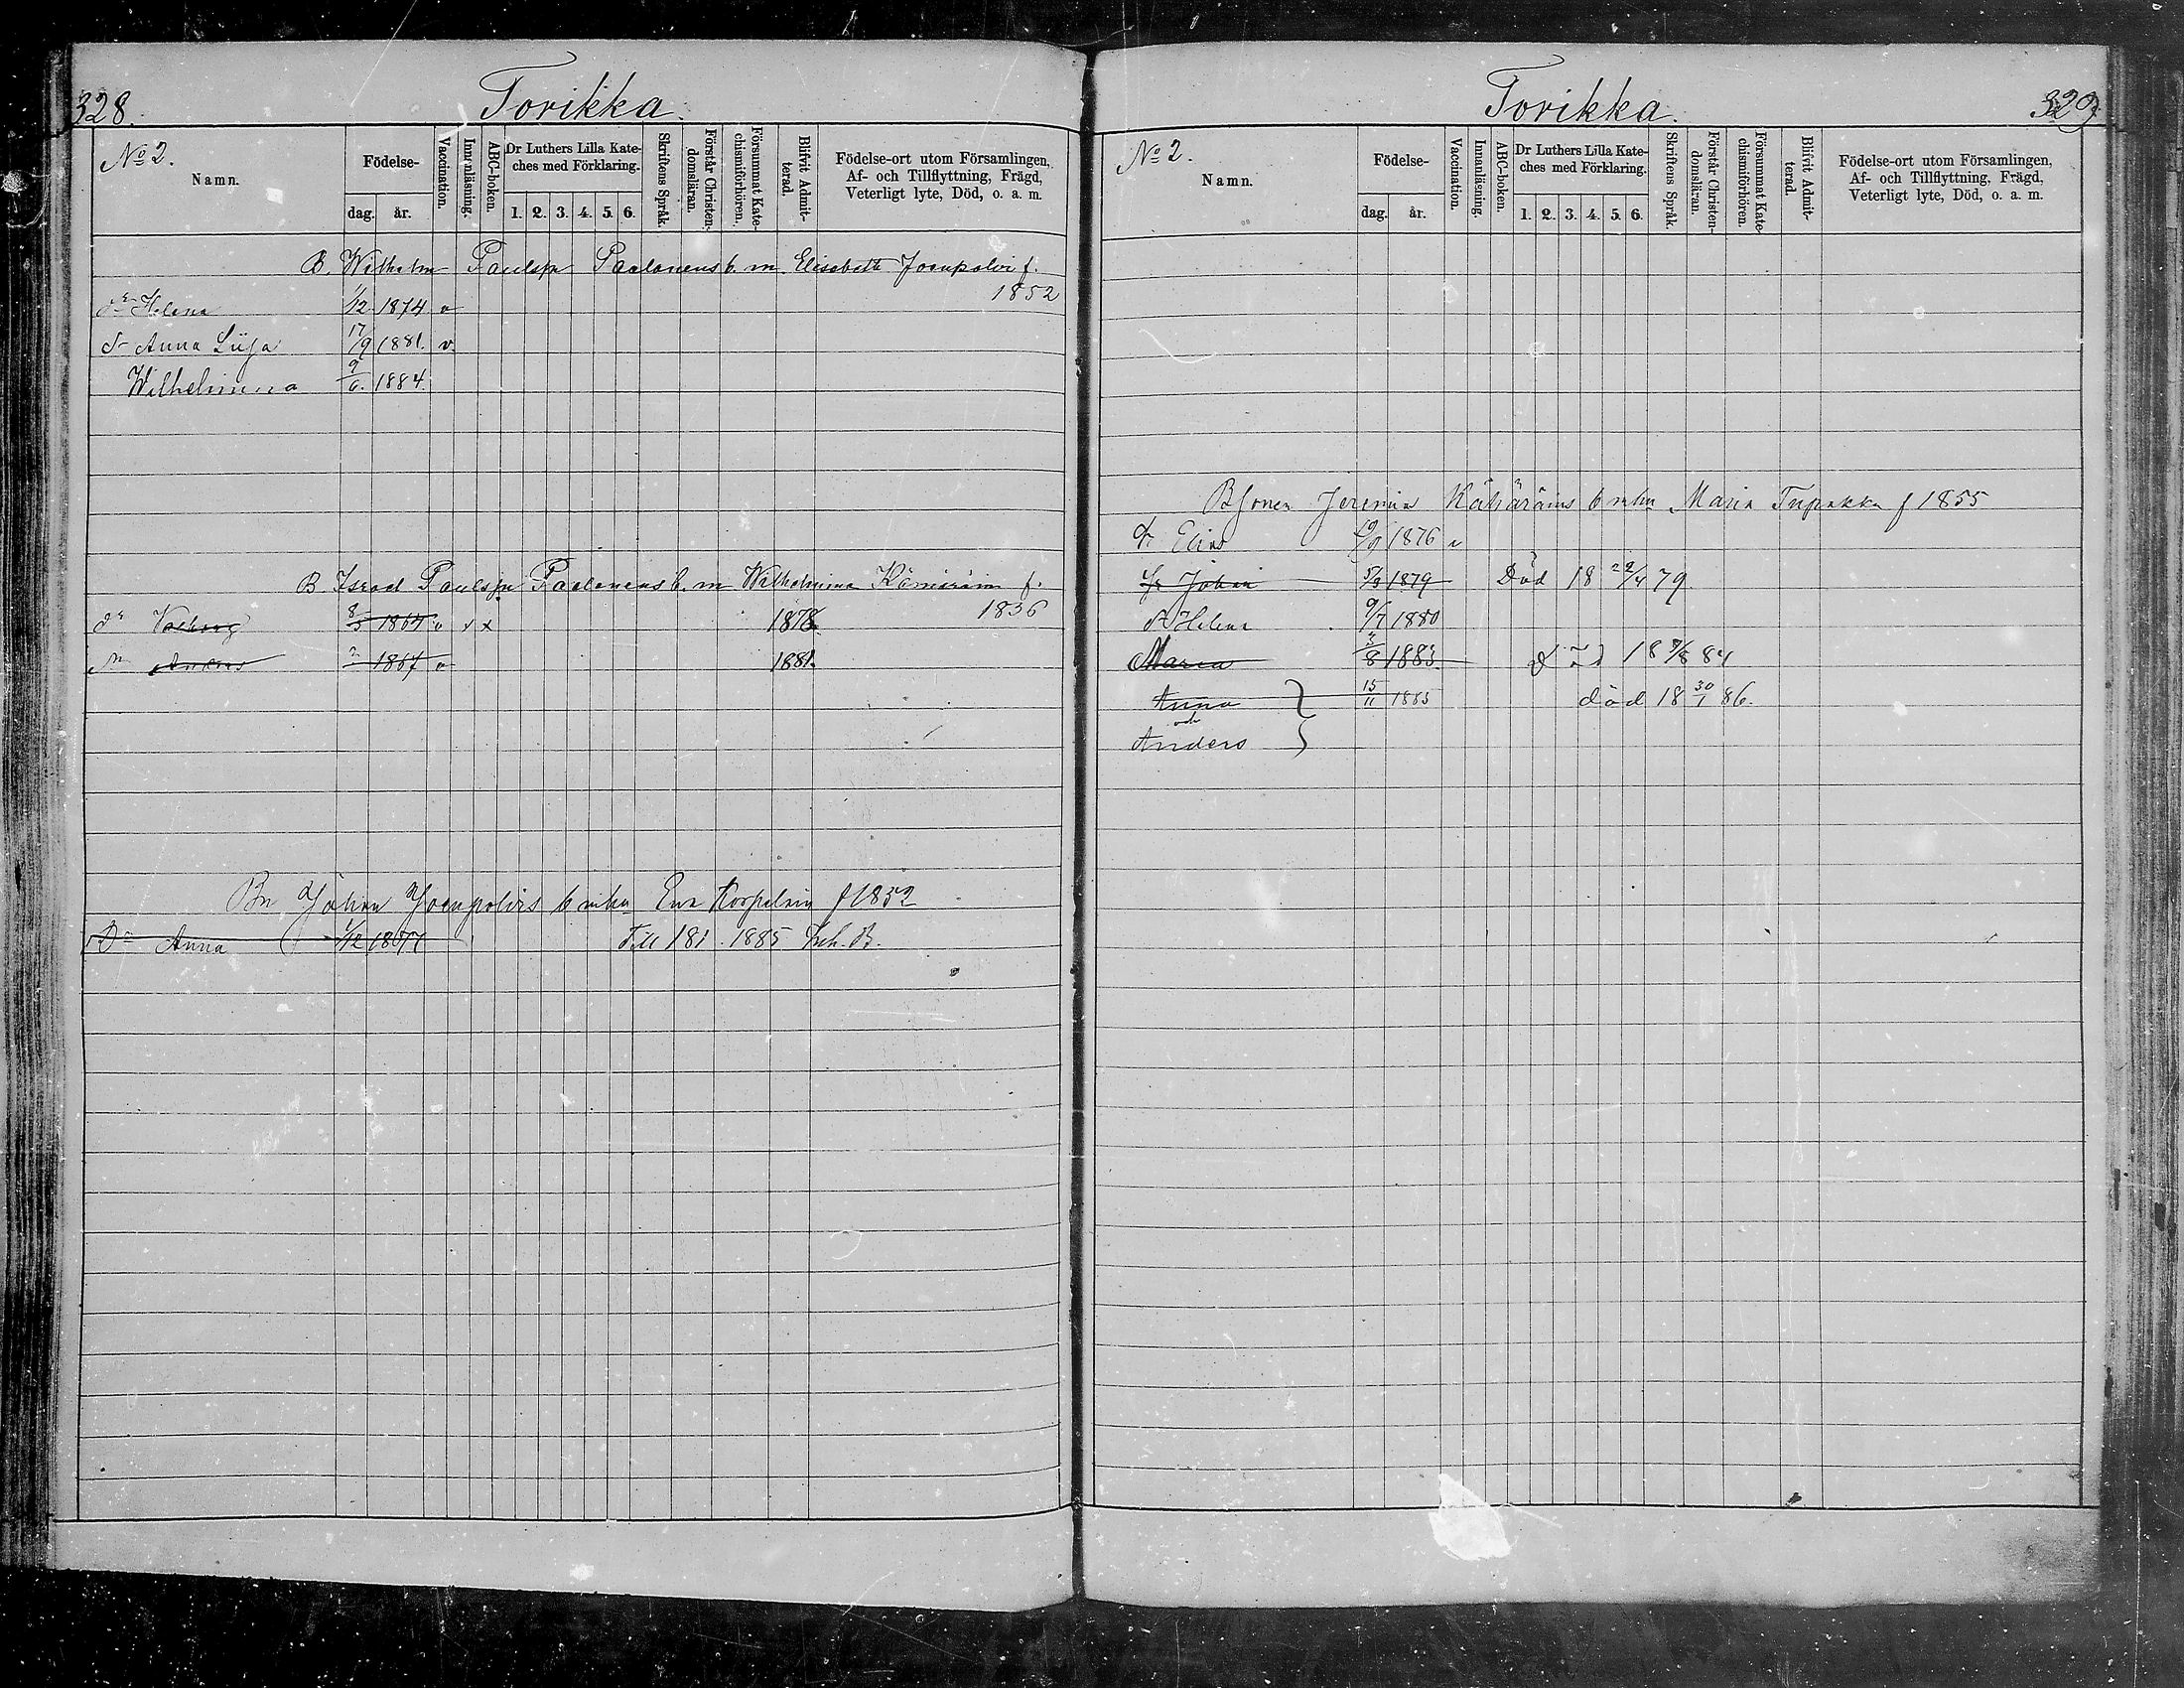 328.
Torikka.
No 2.
Namn.
Födelse-
dag. år.
Vaccination.
Innanläsning.
ABC-boken.
Dr Luthers Lilla Kate-
ches med Förklaring.
1. 2. 3. 4. 5. 6.
Skriftens Språk.
Förstår Christen-
domsläran.
Försummat Kate-
chismiförhören.
Blifvit Admit-
terad.
Födelse-ort utom Församlingen,
Af- och Tillflyttning, Frägd,
Veterligt lyte, Död, o. a. m.
B. Wilhelm Paulspn Paalanens b. m. Elisabeth Joenpolvi f.
1852
dr Helena 1/12 1874 v
dr Anna Liisa 17/9 1881. v.
Wilhelmina 9/6. 1884.
B Israel Paulspn Paalanens b. m Wilhelmina f.
1836
dr 8/3 v x x 1878.
Anders 1867 v 1881.
Bn Johan Joenpolvis b mhu Eva f 1832
Dr Anna 1/12 Till 181. 1885 B.
Torikka.
329.
No 2.
Namn.
Födelse-
dag. år.
Vaccination.
Innanläsning.
ABC-boken.
Dr Luthers Lilla Kate-
ches med Förklaring.
1. 2. 3. 4. 5. 6.
Skriftens Språk.
Förstår Christen-
domsläran.
Försummat Kate-
chismiförhören.
Blifvit Admit-
terad.
Födelse-ort utom Församlingen,
Af- och Tillflyttning, Frägd,
Veterligt lyte, Död, o. a. m.
Jeremias b mhu Maria f 1855
Elias 1876 v
Johan 5/3 1879 Död 18 22/4 79.
dr Helena 9/7 1880
Maria 3/8 1883. 84
Anna 15/11 1885 död 18 30/1 86.
och
Anders